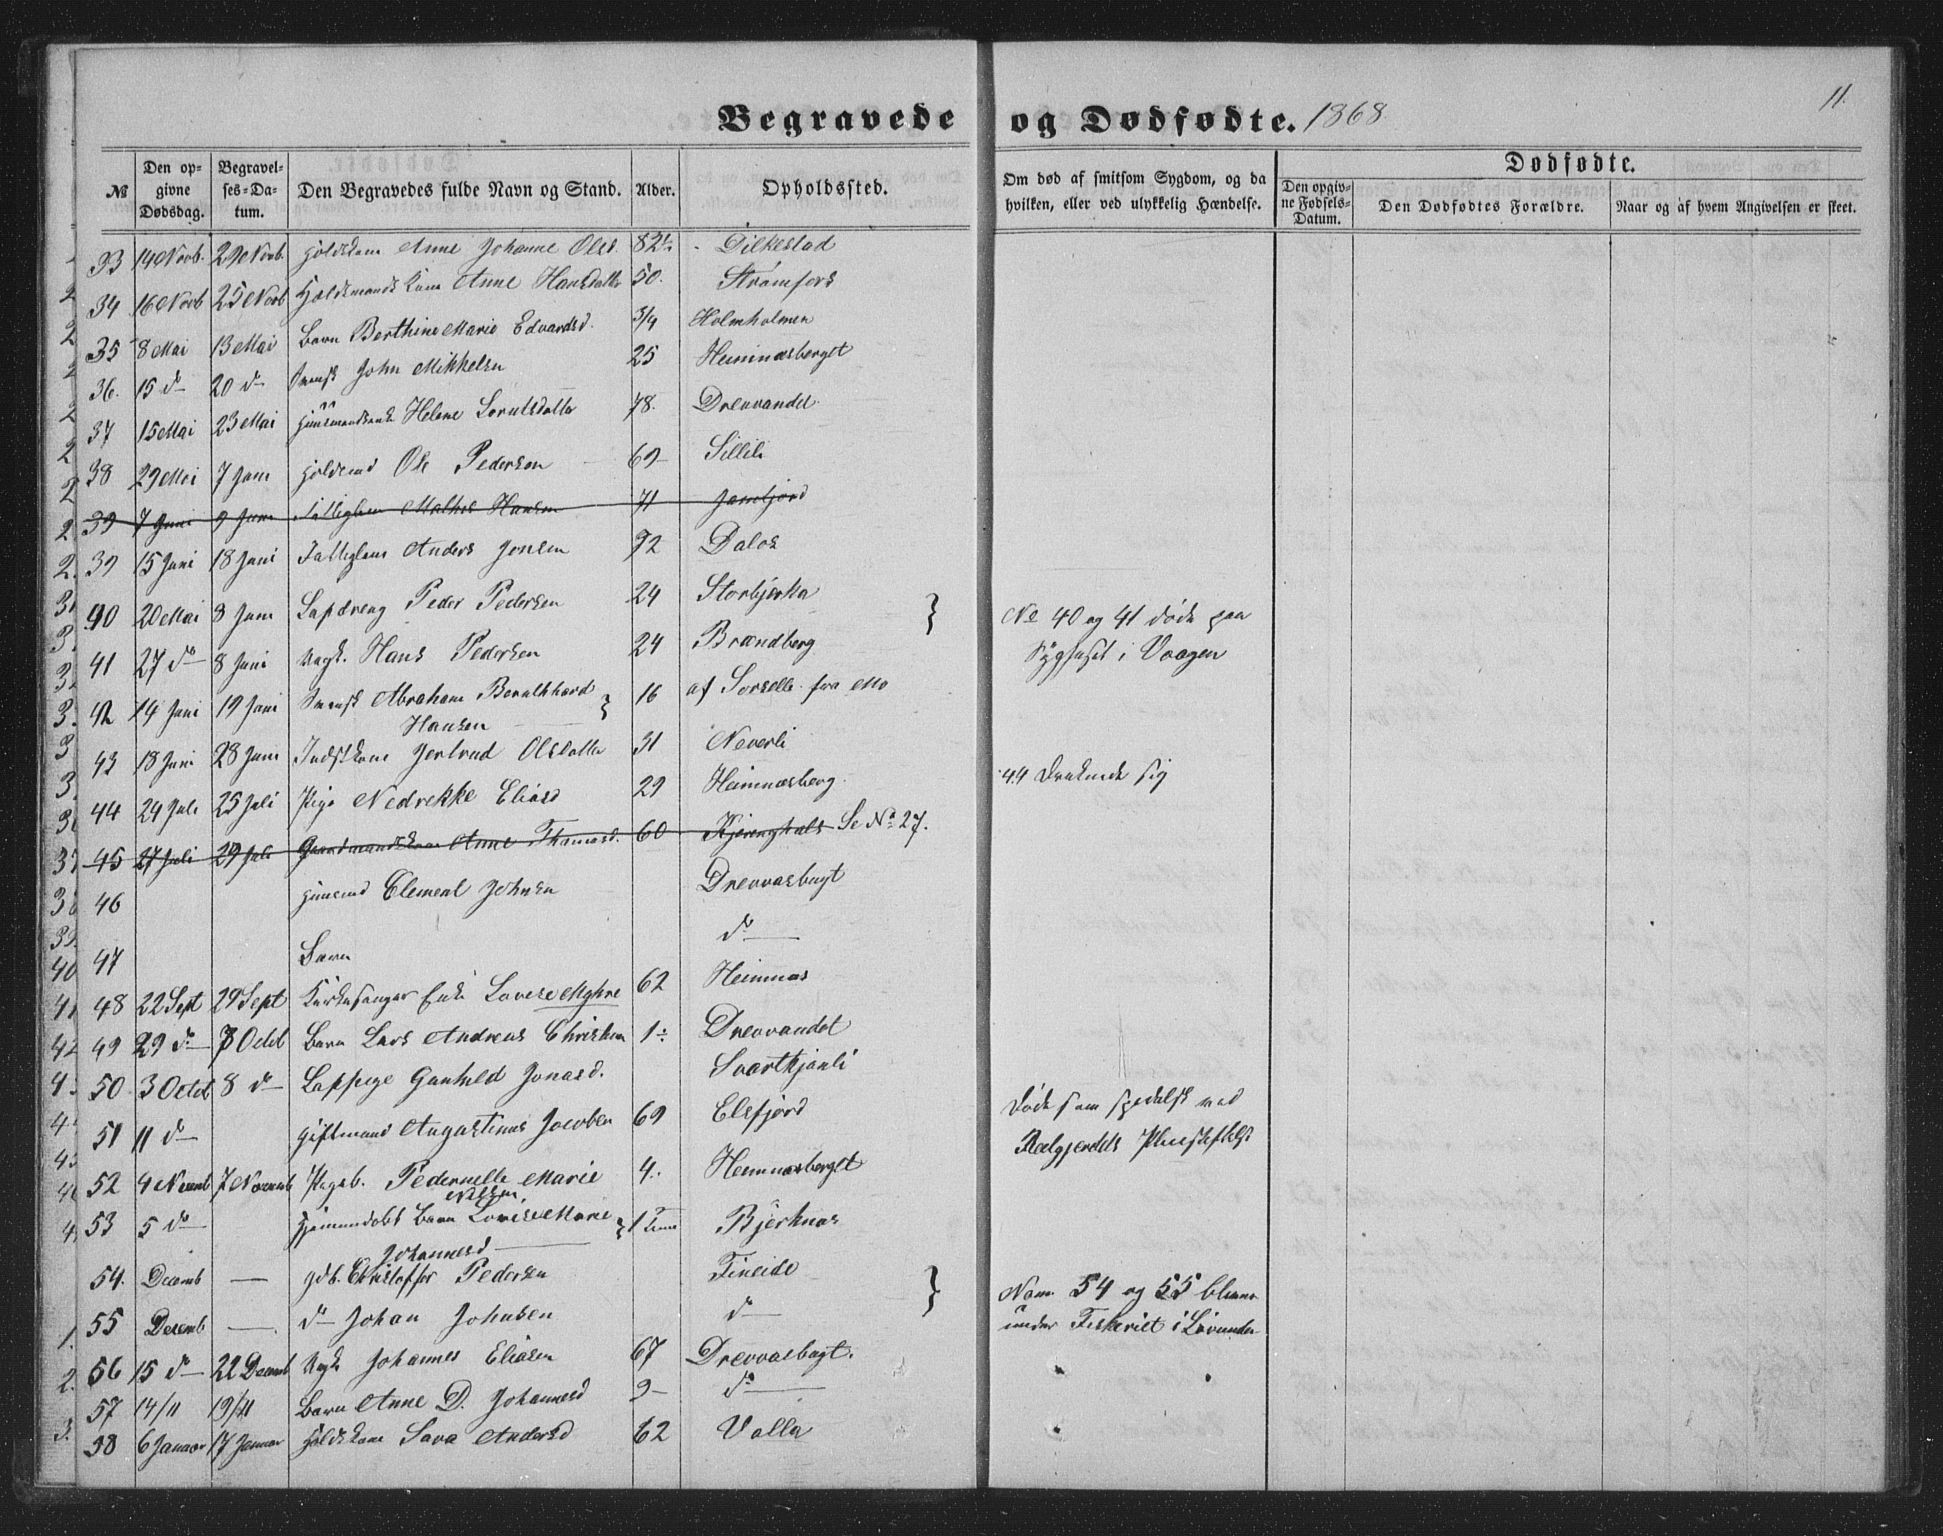 Begravede og Dødfødte. 1868
11.
№ Den opgivne Dødsdag. Begravelses-Datum. Den Begravedes fulde Navn og Stand. Alder. Opholdssted. Om død af smitsom Sygdom, og da hvilken, eller ved ulykkelig Hændelse. Dødfødte.
Den opgivne Fødsels-Datum. Den Dødfødtes Forældre. Naar og af hvem Angivelsen er skeet.
33 14 Novb. 29 Novb. Anne Johanne Olsd. 82½ Dilkestad
34 16 Novb 25 Novb Anne Hansdatter 50. Strømfors
35 8 Mai 13 Mai Barn Berthine Marie Edvardsd. 3/4 Holmholmen
36. 15 do 20 do John Mikkelsen 25 Hemnæsberget
37 15 Mai 23 Mai Helene Lorntsdatter 78. Drevvandet
38 29 Mai 7 Juni Ole Pedersen 69 Sillili
39 7 Juni 9 Juni Mathis Hansen 71
39 15 Juni 18 Juni Anders Jonsen 92 Dalos
40 20 Mai 8 Juni Lapdreng Peder Pedersen 24 Storbjerka } No 40 og 41 døde paa
41 27 do 8 Juni Ungk. Hans Pedersen 24 Brændberg Sygehuset i Vaagen
42 14 Juni 19 Juni Svensk Abraham Bernthhard } 16 af Sorselle fra Mo
Hansen
43 18 Juni 28 Juni Jertrud Olsdatter 31 Neverli
44 24 Juli 25 Juli Pige Nedrekke Eliasd 29 Hemnæsberg 44 Druknede sig
45 27 Juli 29 Juli Gaardmandskone Anne Thomasd. 60 Kjerenghals Se No 27.
46 Clement Johnsen Drevvasbugt
47 Barn do
48 22 Sept 29 Sept Kirkesanger Enke Lovise Myhre 62 Hemnæs
49 29 do 7 Octb Barn Lars Andreas Christian 1 Drevvandet
50 3 Octb 8 do Lappige Gunhild Jonasd. Svartkjønli
51 11 do Giftmand Augustinus Jacobsen 69 Elsfjord Døde som spedalsk ved
Reitgjerdets Pleiestiftelse
52 4 Novemb 7 Novemb Pigeb. Pedernelle Marie 4. Hemnæsberget
Nilsen
53 5 do Barn Lovise Marie } 1 Bjerknæs
Johannesd
54. Decemb — Christoffer Pedersen Fineide } Nom 54 og 55 bleve
55 Desemb — do Johan Johnsen do under Fiskeriet i Lovunden
56 15 do 22 Decemb Johannes Eliasen 67 Drevvasbugt.
57 14/11 19/11 Barn Anne D. Johannesd 9 do
58 6 Januar 17 Januar Sara Andersd 62 Valla